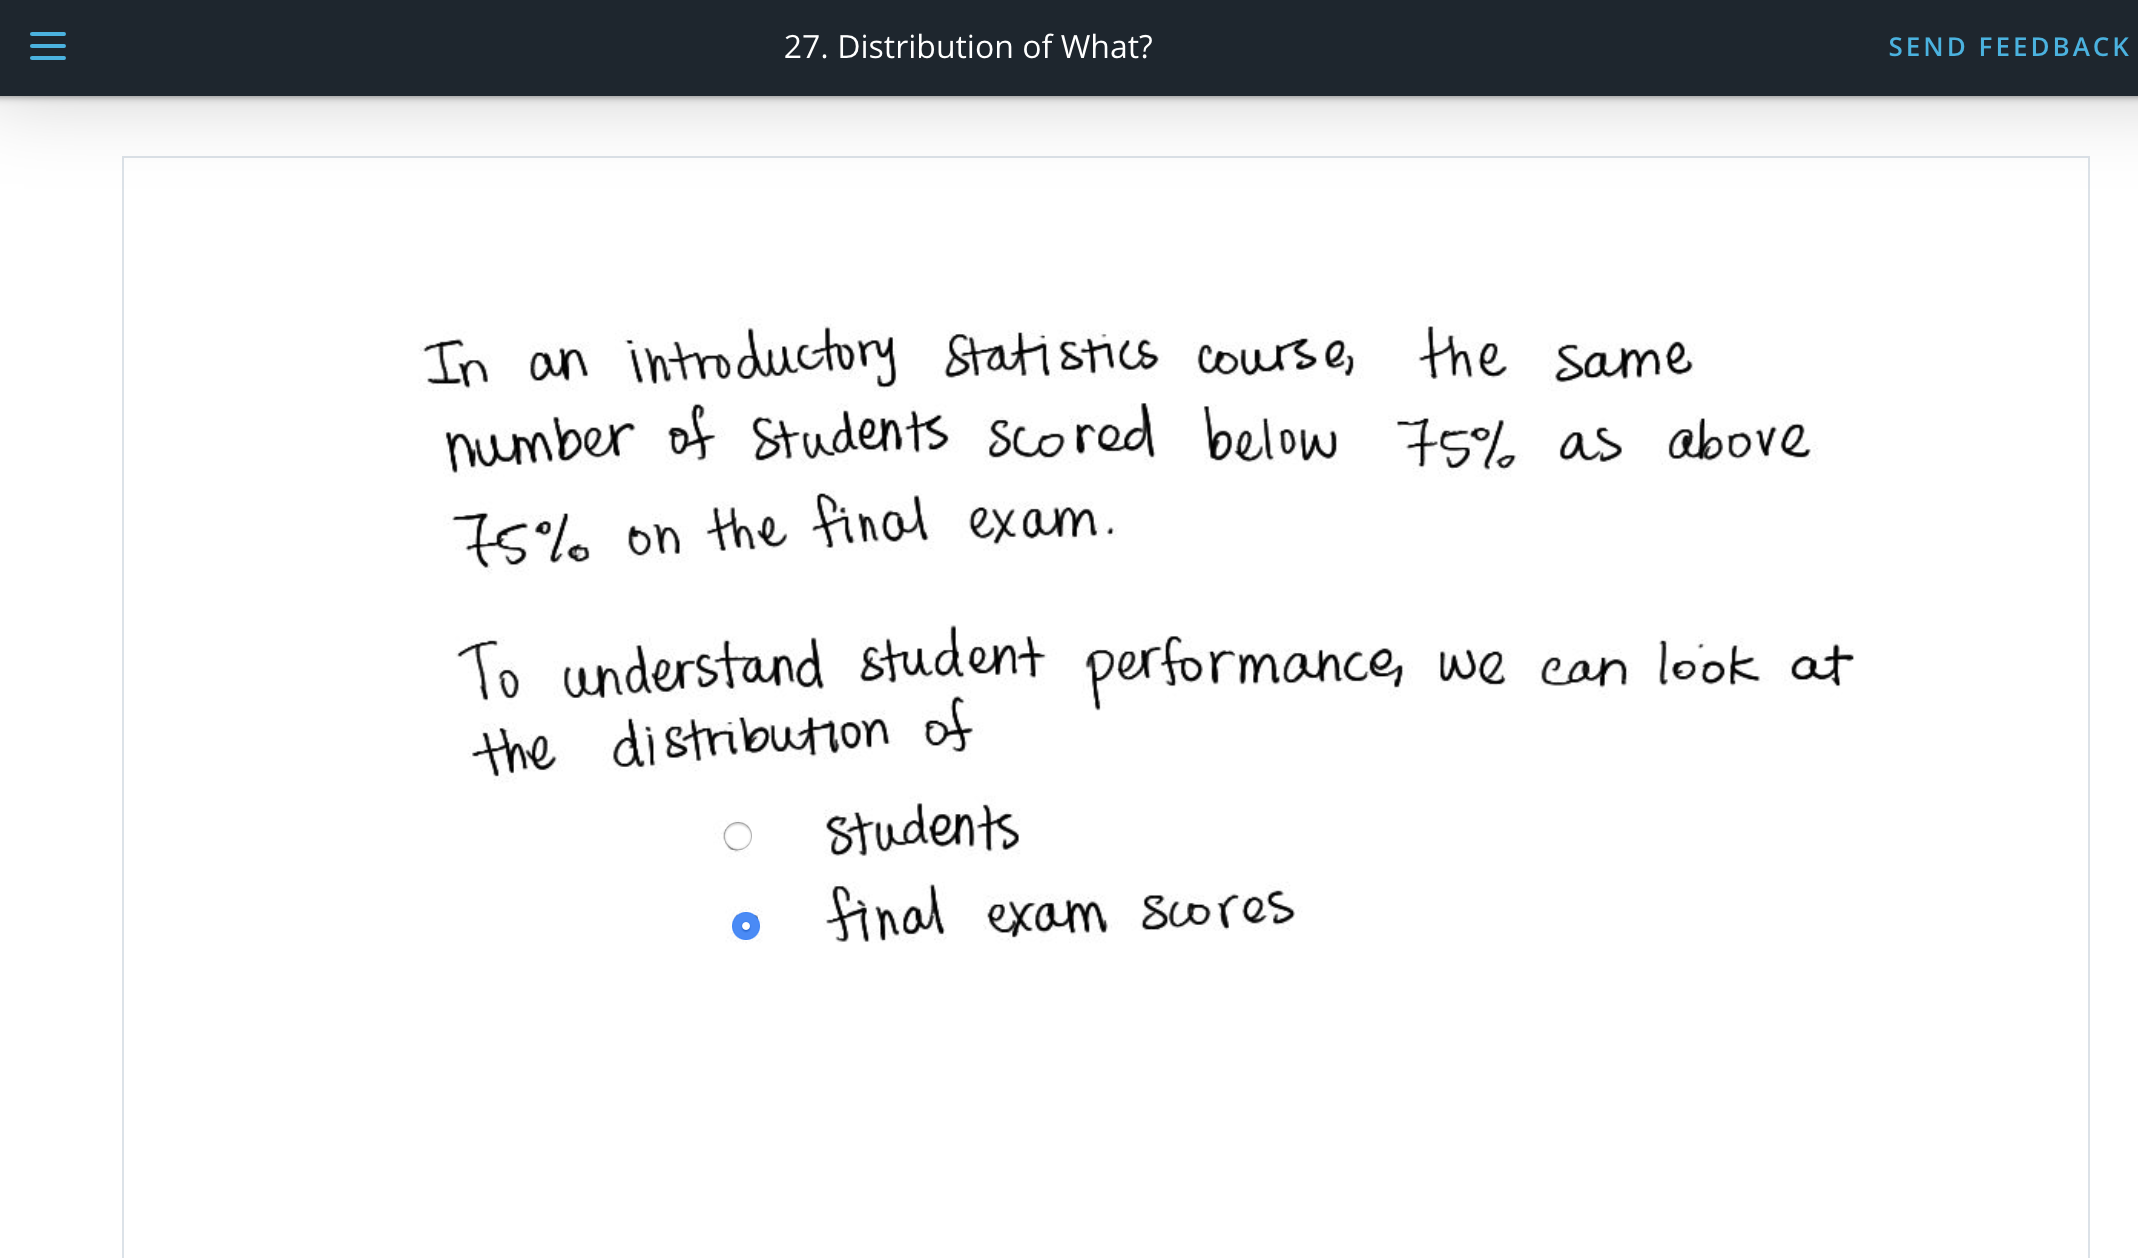 27. Distribution of What?
SEND FEEDBACK
In an introductory statistics course, the same
number of students scored below 75% as above
75% on the final exam.
To understand student performance, we can look at
the distribution of
students
final exam scores